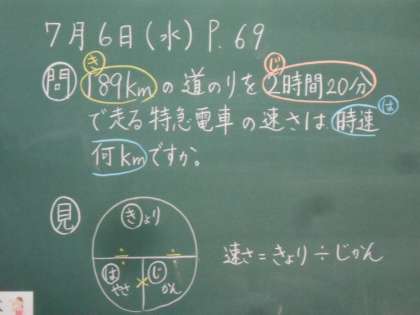 7月6日(水) P.69
き じ
問 189kmの道のりを2時間20分
は
で走る特急電車の速さは、時速
何kmですか。
見
きょり
÷ ÷
はやさ × じかん
速さ=きょり÷じかん